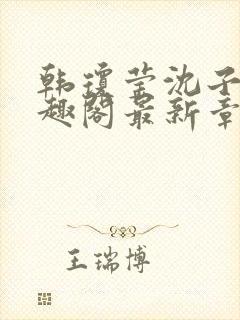 韩琼莹沈子
趣阁最新章
王瑞博